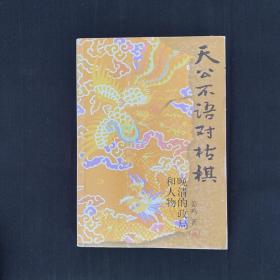 天公不语对枯棋
晚清的政局
和人物
姜鸣 著